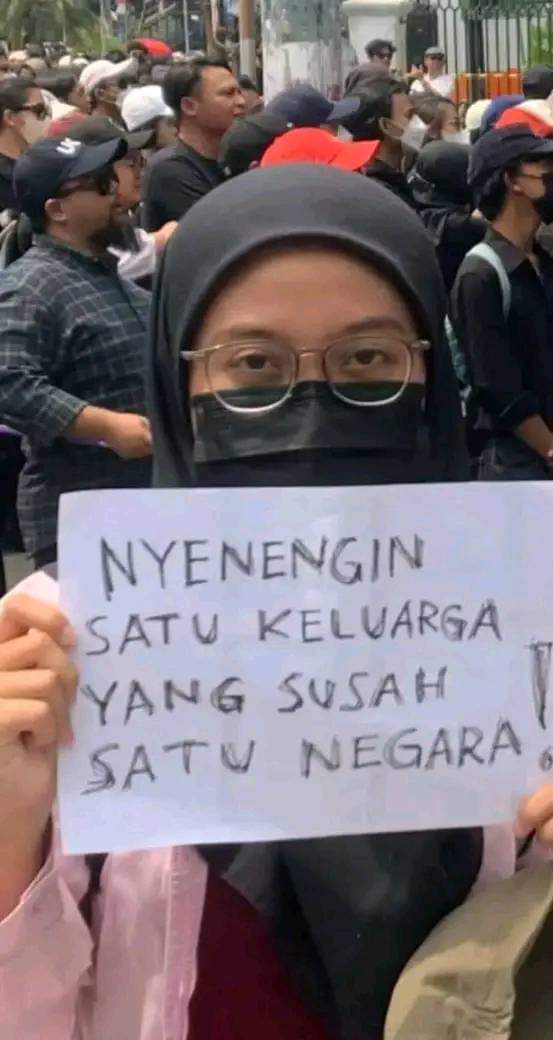 NYENENGIN
SATU KELUARGA
YANG SUSAH
SATU NEGARA!